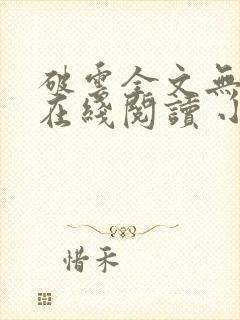 破雲全文無
在綫閱讀
惜禾